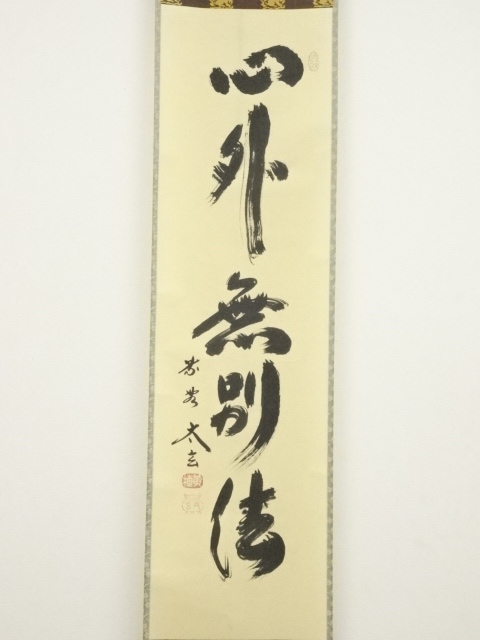 心外無別法
紫野 太玄